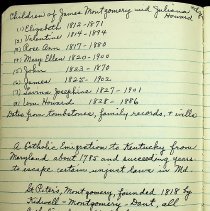 Children of James Montgomery and Juliana
Howard
(1) Elizabeth 1812-1871
(2) Valentine 1814-1894
(3) Rose Ann 1817-1880
(4) Mary Ellen 1820-1900
(5) John 1823-1870
(6) James 1825-1902
(7) Lavina Josephine 1827-1901
(8) Leon Howard 1828-1886
Dates from tombstones, family records, & wills.
A Catholic Emigration to Kentucky from
Maryland about 1785 and succeeding years
to escape certain unjust laws in Md.
St Peter's, Montgomery, founded 1818 by
Kidwell - Montgomery - Dent, all